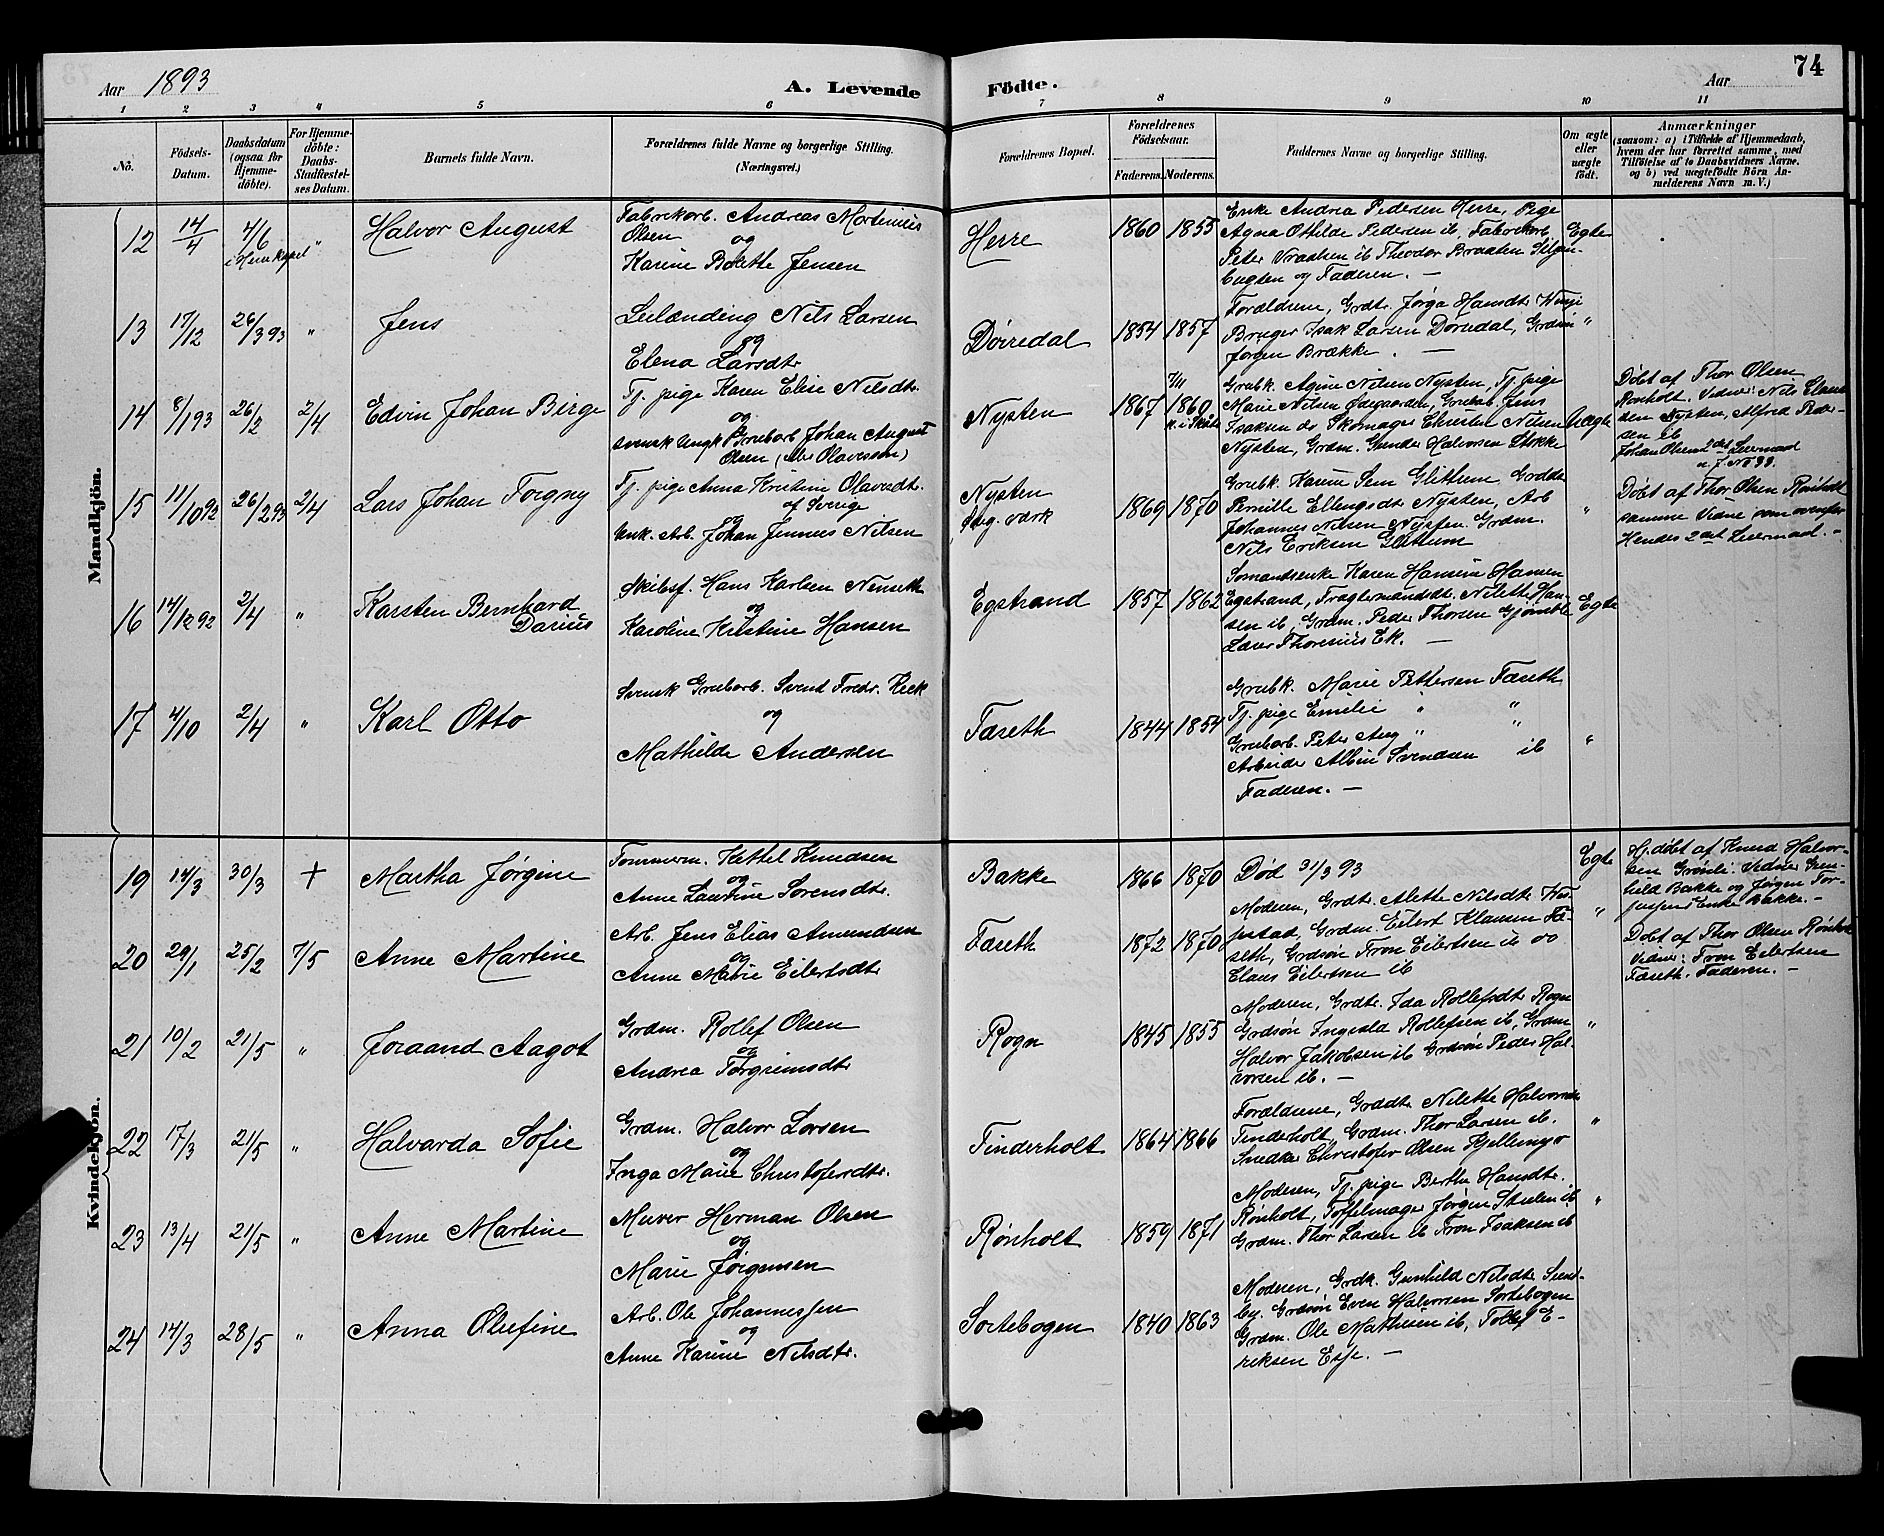 74
Aar 1893
A. Levende
Födte.
Aar
1 2 3 4 5 6 7 8 9 10 11
No.
Födsels-
Datum.
Daabsdatum
(ogsaa for
Hjemme-
döbte).
For Hjemme-
döbte:
Daabs-
Stadfæstel-
ses Datum.
Barnets fulde Navn.
Forældrenes fulde Navne og borgerlige Stilling.
(Næringsvei.)
Forældrenes Bopæl.
Forældrenes
Födselsaar.
Faderens. Moderens.
Faddernes Navne og borgerlige Stilling.
Om ægte
eller
uægte
født.
Anmærkninger
(saasom: a) i Tilfælde af Hjemmedaab,
hvem der har forrettet samme, med
Tilföielse af to Daabsvidners Navne.
og b) ved uægtefödte Börn An-
melderens Navn m.V.)
Mandkjön.
12
14/4
4/6
i Herre kapel
"
Halvor August
Fabrikarb. Andreas Martinius
Olsen
og
Karine Bolette Jensen
Herre
1860 1855
Enke Andrea Pedersen Herre, Pige
Agna Othilde Pedersen ib, Fabrikarb
Peter Vraalsen ib Theodor Braaten Siljan-
bugten og Faderen. —
Egte
13
17/12
26/3 93
"
Jens
Leilænding Nils Larsen
og
Elena Larsdtr
Dörredal
1854 1857
Forældrene, Grdtr. Jörga Hansdtr
Bruger Isak Larsen Dörredal, Grdsön
Jörgen Brække. —
"
14
8/1 93
26/2
2/4
Edvin Johan Birge
Tj. pige Karen Elise Nilsdtr.
og
svensk Ungk Grubarb Johan August
Olsen (eller Olavesson)
Nysten
7/11
1867 1860
Grubk. Agine Nilsen Nysten, Tj. pige
Marie Nilsen Ödegaarden, Grubarb. Jens
Isaksen ds Skomager Christen Nilsen
Nysten, Grdm. Gunder Halvorsen Stokke
Uægte
Döbt af Thor Olsen
Rönholt. Vidner: Nils Claus-
sen Nysten, Alfred Peder-
sen ib
Johan Olsens 2det Leiermaal
15
11/10 92
26/2 93
2/4
Lars Johan Torgny
Tj. pige Anna Kristine Olavesdtr.
af Sverige
og
Unk. Arb. Johan Jennes Nilsen
Nysten
1869 1870
Grubk. Karine Sem Glittum Grddtr
Pernille Ellingsdtr Nysten, Arb
Johannes Nilsen Nysten. Grdm.
Nils Eriksen Glittum
"
Döbt af Thor Olsen Rönholt
samme Vidne som ovenfor
Hendes 2det Leiermaal. -
16
14/12 92
2/4
"
Karsten Bernhard
Darius
Skibsf. Hans Karlsen
og
Karoline Kristine Hansen
Egstrand
1857 1862
Sömandsenke Karen Hansine Hansen
Egstrand, Nilette Han-
sen ib, Grdm. Peder Thorsen
Lærer Thorenius Ek. —
Egte
17
4/10
2/4
"
Karl Otto
Svensk Grubarb. Svend Fredr. Keck
og
Mathilde Andersen
Fæseth
1844 1854
Grubk. Marie Pettersen Fæseth
Tj. pige Emilie " "
Grubarb. Peter Aug " "
Arbeider Albin Svendsen ib
Faderen. —
"
Kvindekjön.
19
14/3
30/3
+
Martha Jörgine
Tömmerm. Kittel Knudsen
og
Anne Laurine Sörensdtr.
Bakke
1866 1870
Död 31/3 93
Egte
Hj. döbt af Knud Halvor-
sen Grönli. Vidner Gun-
hild Bakke og Jörgen Tor-
jusens Enke Bakke. —
20
29/1
25/2
7/5
Anne Martine
Arb. Jens Elias Amundsen
og
Anne Marie Eilertsdtr
Fæseth
1872 1870
Moderen, Grdtr. Alette Nilsdtr
Grdm. Eilert Klausen Fæ-
seth, Grdsön Tron Eilertsen ib og
Claus Eilertsen ib
"
Döbt af Thor Olsen Rönholt
Vidner: Tron Eilertsen
Fæseth. Faderen. —
21
10/2
21/5
"
Joraand Aagot
Grdm. Rollef Olsen
og
Andrea Torgrimsdtr
Rogn
1845 1855
Moderen, Grdtr. Ida Rollefsdtr Rogn
Grdsön Ingvald Rollefsen ib, Grdm
Halvor Jakobsen ib Grdsön Peder Hal-
vorsen ib. —
"
22
17/3
21/5
"
Halvarda Sofie
Grdm. Halvor Larsen
og
Inga Marie Christofersdtr.
Tinderholt
1864 1866
Forældrene, Grddtr Nilette Halvorsen
Tinderholt, Grdm. Thor Larsen ib.
Snedker Christofer Olsen Hellemyr
"
23
13/4
21/5
"
Anne Martine
Murer Herman Olsen
og
Marie Jörgensen
Rönholt
1859 1871
Moderen, Tj. pige Berthe Hansdtr.
Rönholt, Töffelmager Jörgen Steelen ib
Grdm. Thor Larsen ib Tron Isaksen ib
"
24
14/3
28/5
"
Anna Olufine
Arb. Ole Johannessen
og
Anne Karine Nilsdtr.
Sortebogen
1840 1863
Moderen, Grdk. Gunhild Nilsdtr Sund-
by. Grdsön Even Halvorsen Sortebogen
Grdm. Ole Mathisen ib, Tollef E-
riksen Esje. —